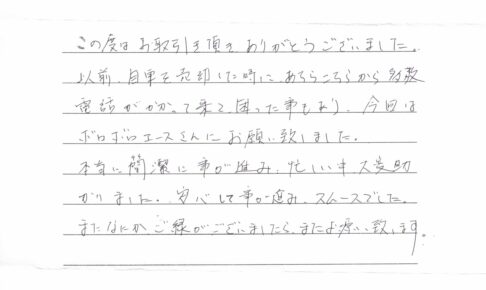 この度はお取引き頂きありがとうございました。
以前、自車を売却した時に あちらこちらから多数
電話がかかって来て、困った事もあり、今回は
エースさんにお願い致しました。
本当に簡潔に事が進み、忙しい中大変助
かりました。安心して事が進み、スムースでした。
またなにかご縁がございましたら、またお願い致します。